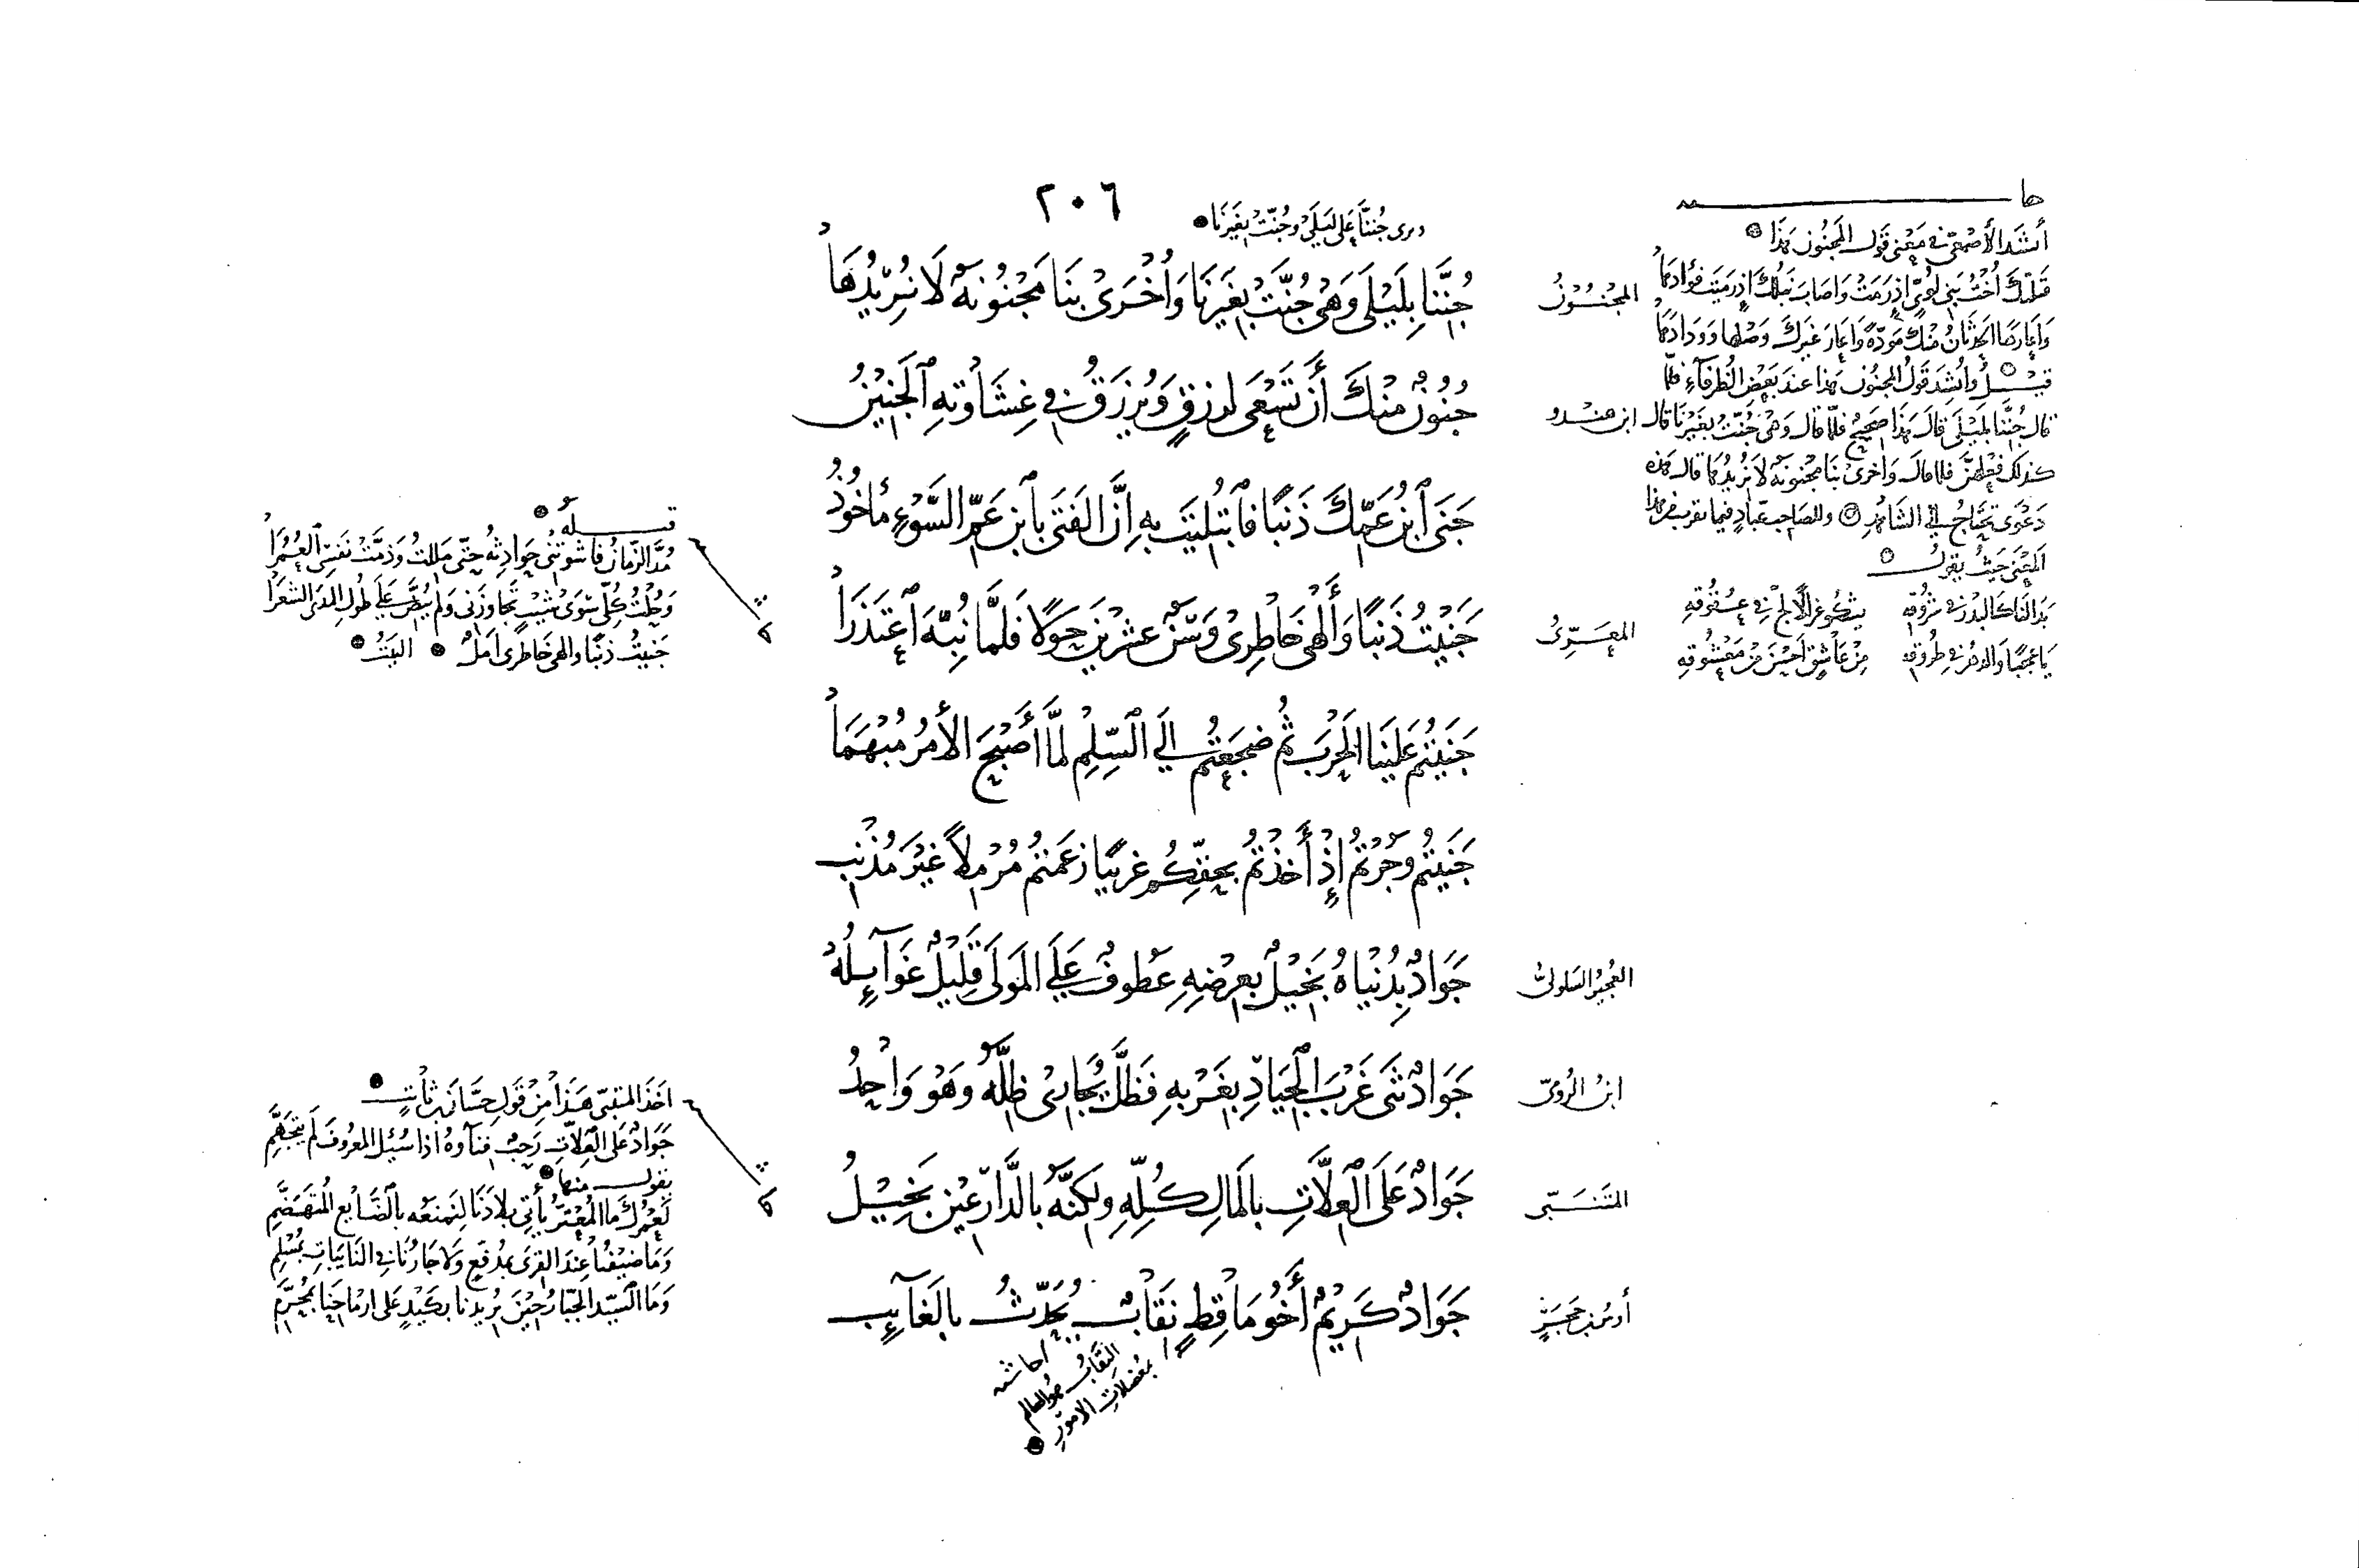 ٢٠٦
ويروى جُنِنَّا عَلى لَيلَى وَجُنَّتْ بِغَيرِنَا
المجْنُونُ
جُنِنَّا بِلَيْلَى وَهْيَ جُنَّتْ بِغَيرِنَا وَأُخْرَى بِنَا مَجْنُونَةٌ لَا نُرِيْدُهَا
جُنُونٌ مِنْكَ أَنْ تَسْعَى لِرزقٍ وَيُرزَقُ فِي غِشَاوَتِهِ الجَنِيْنُ
جَنَى ابنُ عَمِّكَ ذَنبًا فَابْتُلِيتَ بِهِ إِنَّ الفَتَى بِابنِ عَمِّ السَّوْءِ مَأخُوذُ
المعَرِّيُّ
جَنَيْتُ ذَنْبًا وَأَلْهَى خَاطِرِي وَسَنٌ عِشْرِينَ حَوْلًا فَلَمَّا نُبِّهَ اعْتَذَرَا
جَنَيتُمْ عَلَينَا الحَرْبَ ثُمَّ ضَجَعْتُمُ إِلَى السِّلْمِ لَمَّا أَصْبَحَ الأَمْرُ مُبْهَمَا
جَنَيتُمْ وَجُرْتُمْ إِذْ أَخَذْتُمْ بِحَقِّكُمْ غَرِيبًا زَعَمتُمْ مُرْمِلًا غَيْرَ مُذْنِبِ
العُجَيْرُ السَلوليُّ
جَوَادٌ بِدُنْيَاهُ بَخِيْلٌ بِعِرْضِهِ عَطُوفٌ عَلَى المَولَى قَلِيْلٌ غَوَآيِلُهْ
ابنُ الرُوميّ
جَوَادٌ ثَنَى غَرْبَ الجِيَادِ بِغَرْبِهِ فَظَلَّ يُجَارِي ظِلَّهُ وَهْوَ وَاحِدُ
المتَنَبّي
جَوَادٌ عَلَى العِلَّاتِ بِالمَالِ كُلِّهِ ولَكِنَّهُ بالدَّارِعِيْنَ بَخِيْلُ
أوسُ بن حَجَرٍ
جَوَادٌ كَرِيْمٌ أَخُو مَاقِطٍ نِقَابٌ يُحَدِّثُ بالغَآيِبِ
حاشية
النِّقَابُ هُوَ العالم
بمُعضِلَاتِ الامُورِ
حا
أنشَدَ الأصْمَعيّ في مَعْنى قَولِ المجنُونِ هَذَا
قَتَلتكَ أُخْتُ بَنِي لُؤَيٍّ إذ رَمَتْ وَأصَابَ نَبلُكَ إذ رَمَيتَ فُؤادَهَا
وَأعَارَهَا الحَدَثَانُ مِنْكَ مَوَدَّةً وَأعَارَ غَيرَكَ وَصْلَهَا وَوِدَادَهَا
قِيْلَ وَأُنْشِدَ قَولُ المجنُونِ هَذا عندَ بَعْضِ الظُرفَآءِ فلَمّا
قال جُنِنَّا بِلَيْلَى قَالَ هَذَا صَحِيحٌ فلمّا قال وَهْيَ جُنَّتْ بِغَيْرِنَا قال
كذلكَ فِعْلُهُنَّ فلما قالَ وَأُخرَى بِنَا مجنونَةٌ لَا نُرِيْدُهَا قالَ هَذِهِ
دَعْوَى تَحْتَاجُ إلى الشَّاهِدِ وللصَاحِبِ عَبّادٍ فيمَا يقرب من هذا
المَعْنَى حَيثُ يقولُ
بَدَا لَنَا كَالبَدْرِ في شُرُوقِهِ يَشْكُو غَزَالًا لَجَّ في عُقُوقِهِ
يَا عَجَبًا وَالدهْرُ في طُرُوقِهِ مِن عَاشِقٍ أحْسَنَ مِنْ مَعْشُوقِهِ
قبلهُ
مُدَّ الزّمَانُ فَأشْوَتْنِي حَوَادِثُهُ حَتَّى مَلِلتُ وَذَمَّتْ نَفسِيَ العُمُرَا
وَحُلْتُ كُلِّي سِوَى شَيْبٍ تَجَاوَزَنِي وَلَم يُبَيِّضْ عَلَى طُولِ المَدَى الشَّعَرَا
جَنَيتُ ذنبًا والهى خاطري أمَلٌ البَيْتُ
أخَذَ المتنبّي هَذَا مِن قَولِ حَسَّانِ بن ثَابِتٍ
جَوَادٌ عَلَى العِلَّاتِ رَحبٌ فِنَآوهُ إذا سُئِلَ المعروفَ لَم يَتَجَهَّمِ
يقولُ منهَا
لَعَمْرُكَ مَا المُعْتَرُّ يَأتِي بِلَادَنَا لِنَمنَعَهُ بالضَّايعِ المُتَهَضَّمِ
وَمَا ضَيْفُنَا عِندَ القِرَى بمُدَفَّعٍ وَلَا جَارُنَا في النَايِبَاتِ بمُسْلَمِ
وَمَا السَيِّدُ الجَبّارُ حِيْنَ يُريدُنا بِكَيْدٍ عَلى أرمَاحِنَا بمُحَرَّمِ